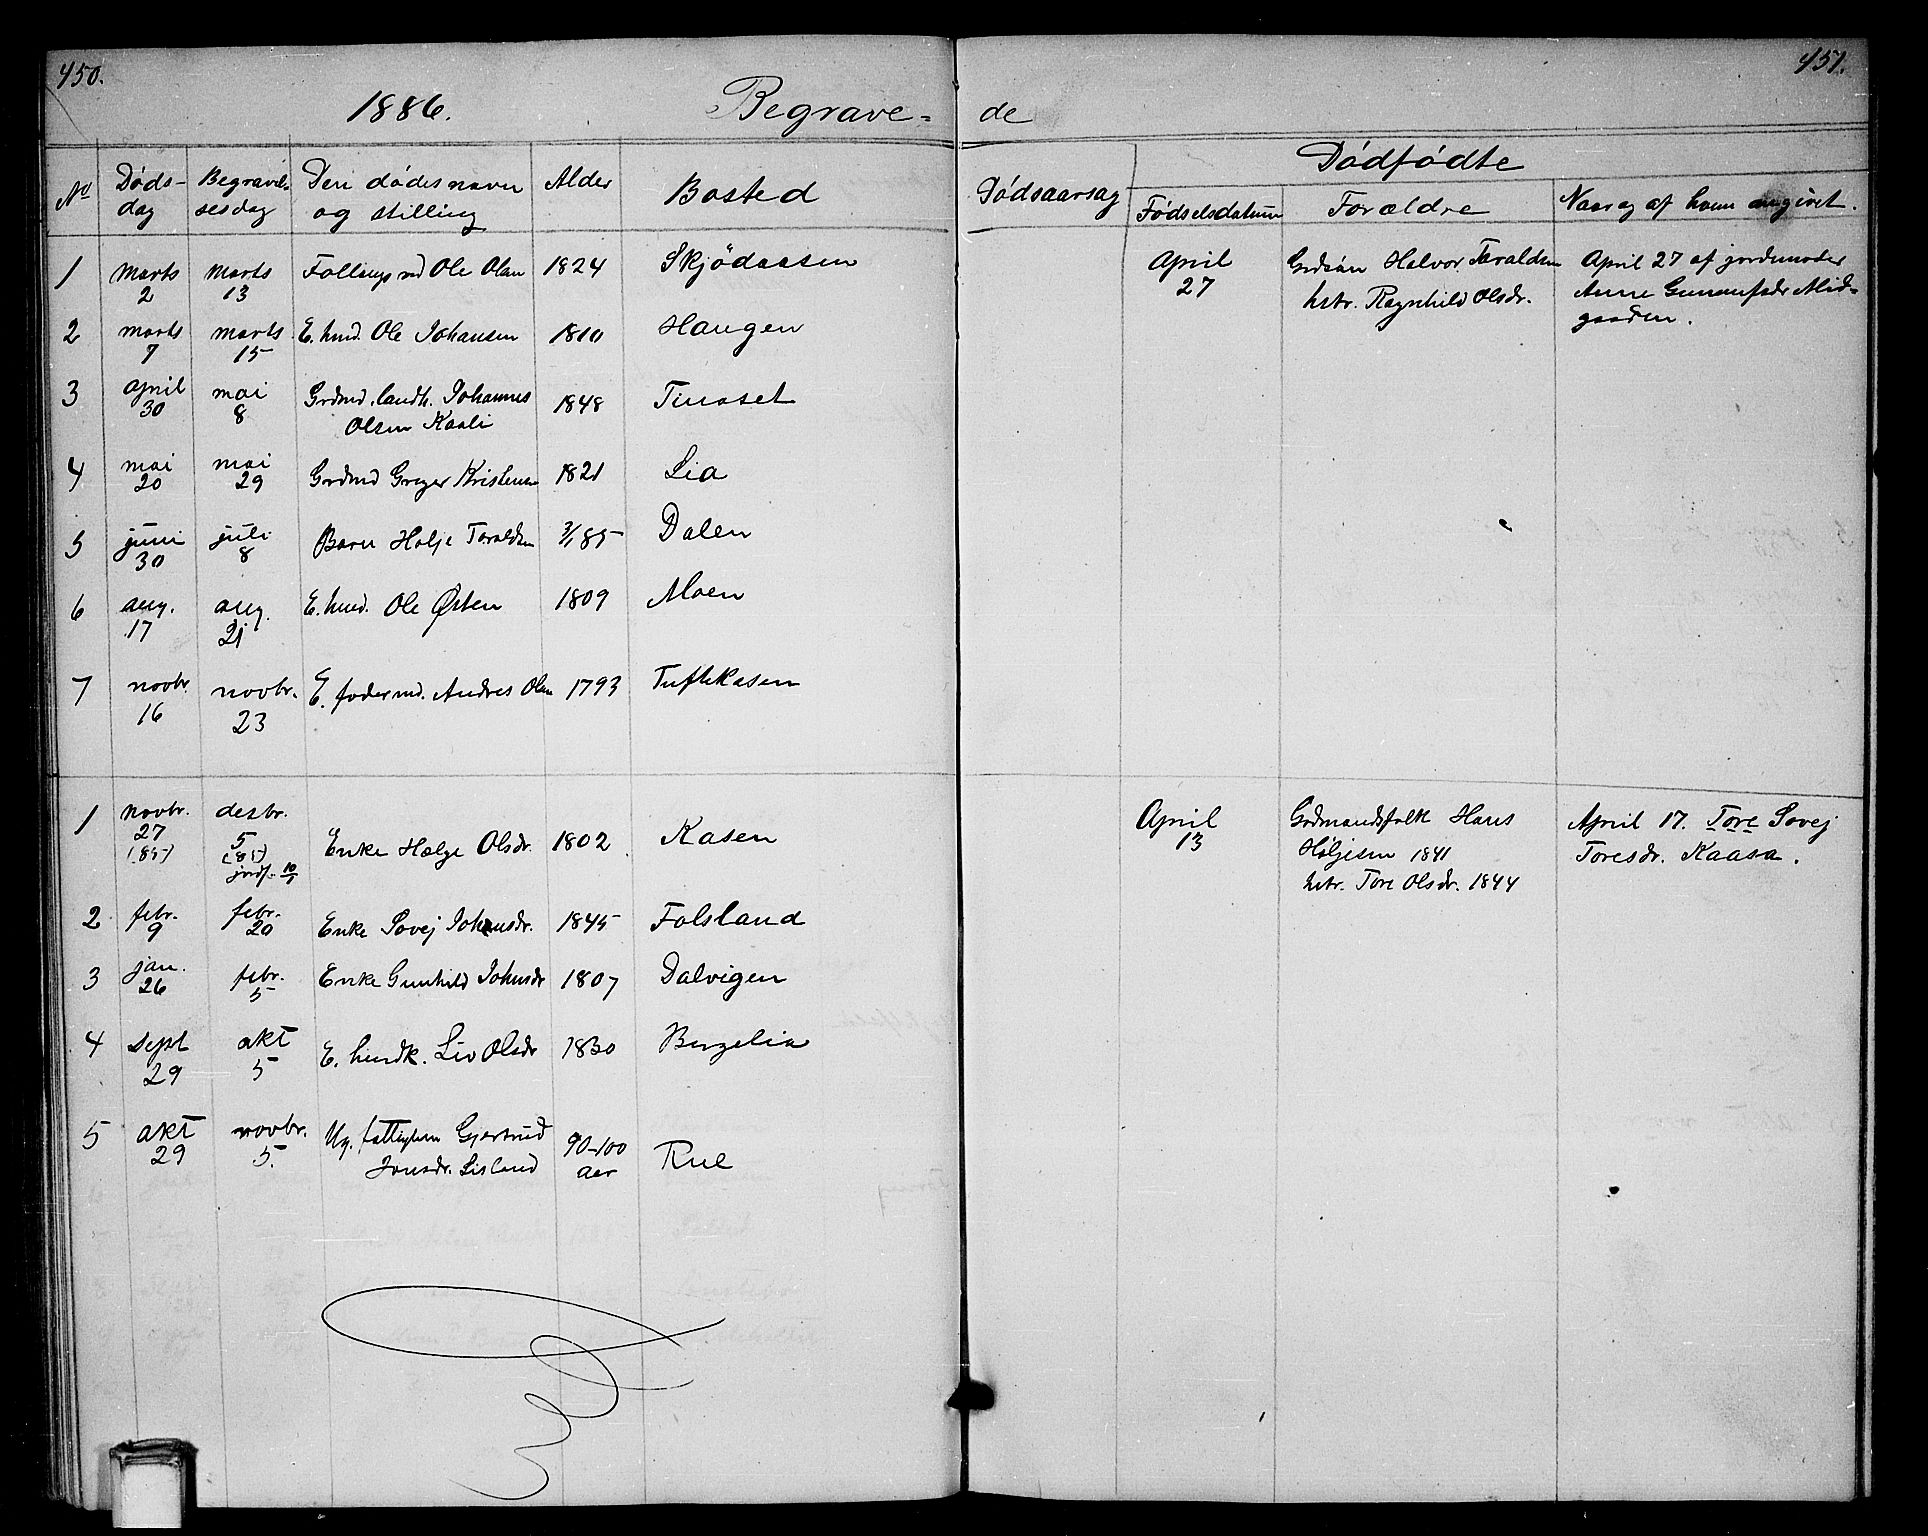 450.
1886. Begrave-
No Døds-dag Begravel-sesdag Den dødes navn og stilling Alder Bosted
1 marts 2 marts 13 Ole Olsen 1824 Skjødaasen
2 marts 7 marts 15 E. kmd. Ole Johansen 1810 Haugen
3 april 30 mai 8 Grdmd. landh. Johannes 1848 Tinoset
Olsen Kaali
4 mai 20 mai 29 Grdmd Greger Kristensen 1821 Lia
5 juni 30 juli 8 Barn Holje Taraldsen 3/1 85 Dalen
6 aug. 17 aug. 21 E. hmd. Ole Østen 1809 Moen
7 novbr. 16 novbr. 23 E. fodermd. Andres Olsen 1793 Tuftekasen
1 novbr. 27 (85) desbr. 5 (85) jordf. 10/1 Enke Hælge Olsdr. 1802 Kasen
2 febr. 9 febr. 20 Enke Sovej Johnsdr. 1845 Folsland
3 jan. 26 febr. 5 Enke Gunhild Johnsdr 1807 Dalvigen
4 sept 29 okt 5 E. husdk. Liv Olsdr 1830 Bergelia
5 okt 29 novbr. 5. Ug. fattiglem Gjertrud 90-100
Jonsdr. Lisland aar Rue
451.
de
Dødfødte
Dødsaarsag Fødselsdatum Forældre Naar og af hvem angivet.
April 27 Halvor Taraldsen April 27 af jordemoder
hstr. Ragnhild Olsdr. Anne Gunnufsdr Mid-
gaarden.
April 13 Grdmandsfolk Hans April 17. Tore Sovej
Høljesen 1841 Toresdr. Kaasa.
hstr. Tore Olsdr. 1844